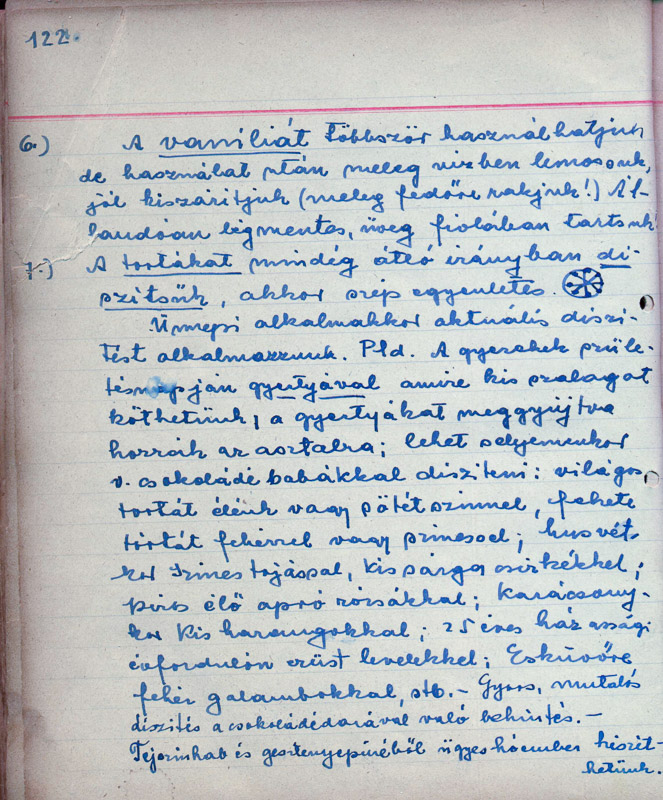 122.
6.) A vaníliát többször használhatjuk
de használat után meleg vizben lemossuk,
jól kiszáritjuk (meleg fedőre rakjuk!) Ál-
landóan légmentes, üveg fiolában tartsuk!
7.) A tortákat mindég átló irányban di-
szitsük, akkor szép egyenletes.
Ünnepi alkalmakkor aktuális diszi-
tést alkalmazzunk. Pld. A gyerekek szüle-
tésnapján gyertyával amire kis szalagot
köthetünk, a gyertyákat meggyújtva
hozzuk az asztalra; lehet selyemcukor
v. csokoládé babákkal disziteni: világos
tortát élénk vagy sötét szinnel, fekete
tortát fehérrel vagy szinessel; husvét-
kor szines tojással, kis sárga csirkékkel;
piros élő apró rózsákkal; karácsony-
kor kis harangokkal; 25 éves házassági
évfordulón ezüst levelekkel; Esküvőre
fehér galambokkal, stb. - Gyors, mutatós
diszités a csokoládédarával való behintés. -
Tejszinhab és gesztenyepüréből ügyes hóember készit-
hetünk.